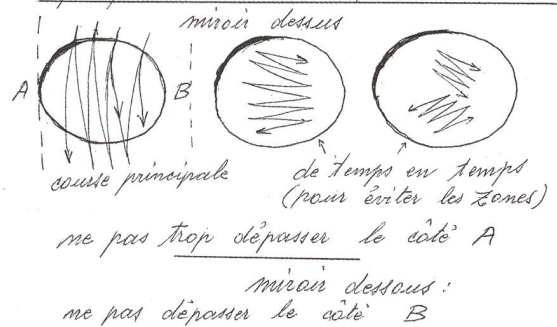 miroir dessus
A
B
course principale
de temps en temps
(pour éviter les zones)
ne pas trop dépasser le côté A
miroir dessous :
ne pas dépasser le côté B